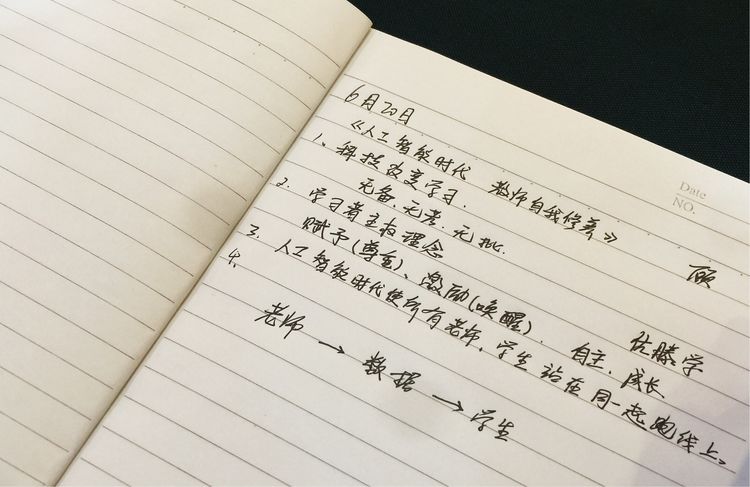 Date
NO.
6月20日
《人工智能时代 老师自我修养》 顾
1、科技改变学习.
无备.无考.无批.
2. 学习者主权理念 佐藤学
赋予(尊重)、激励(唤醒). 自主、成长
3. 人工智能时代使所有老师、学生站在同一起跑线上。
4.
老师 → 数据 → 学生